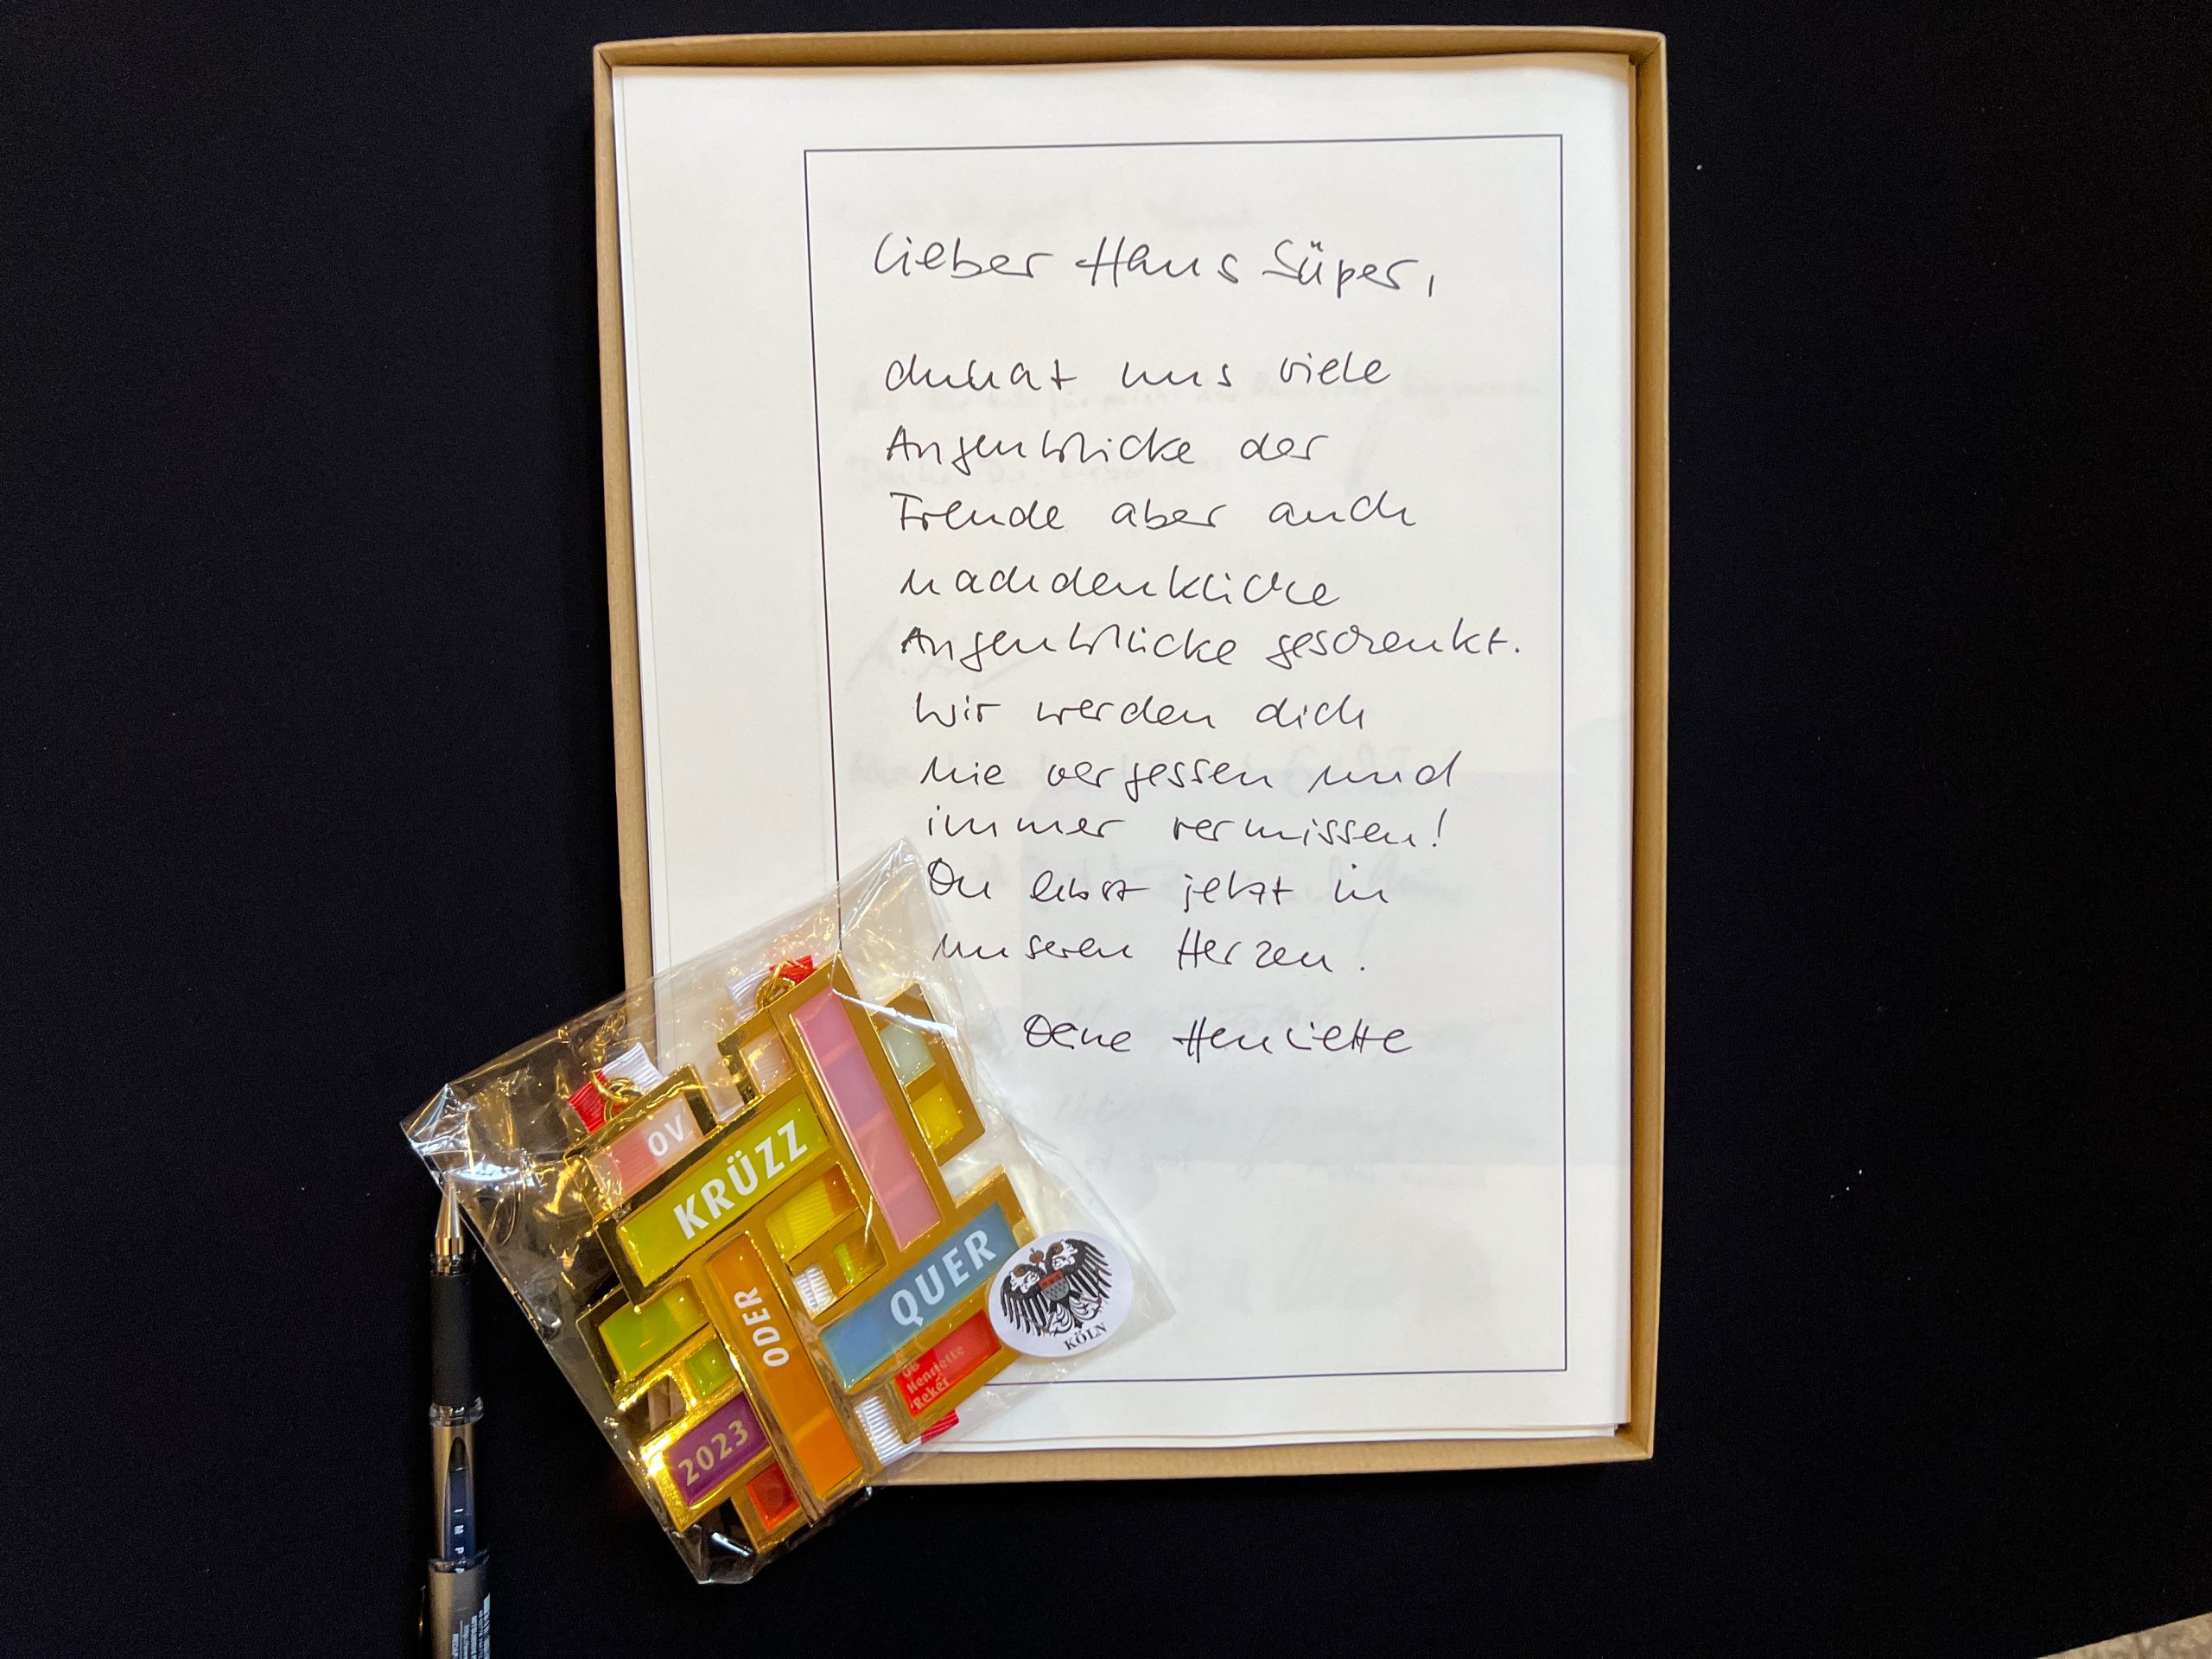 Lieber Hans Süper,
du hat uns viele
Augenblicke der
Freude aber auch
nachdenkliche
Augenblicke geschenkt.
Wir werden dich
nie vergessen und
immer vermissen!
Du lebst jetzt in
unseren Herzen.
Deine Henriette
OV
KRÜZZ
ODER
QUER
OB
Henriette
Reker
2023
KÖLN